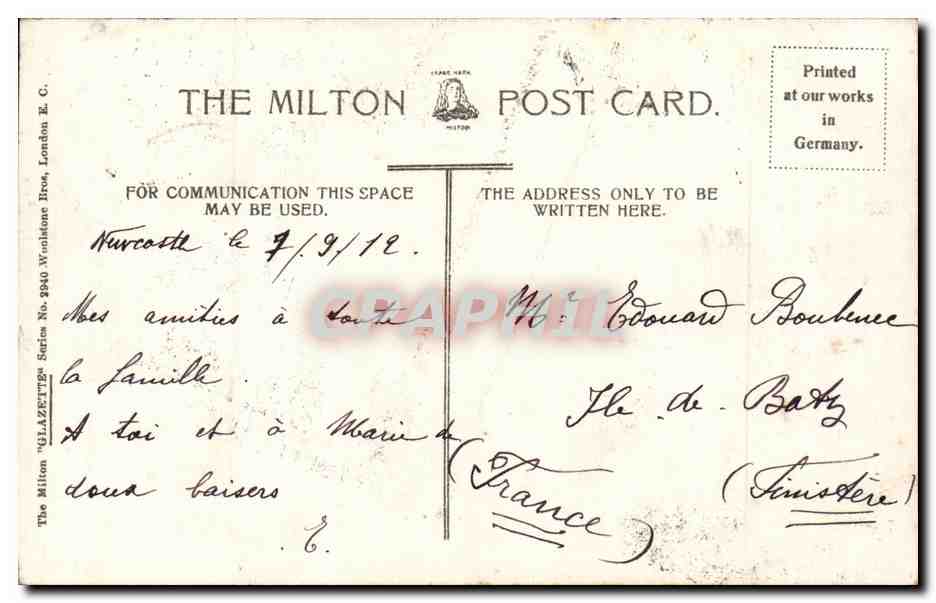 THE MILTON POST CARD.
TRADE MARK
MILTON
Printed
at our works
in
Germany.
FOR COMMUNICATION THIS SPACE
MAY BE USED.
THE ADDRESS ONLY TO BE
WRITTEN HERE.
The Milton "GLAZETTE" Series No. 2940 Woolstone Bros, London E. C.
Newcastle le 7/9/12.
Mes amitiés à toute
la famille.
A toi et à Marie de
doux baisers
E.
Mr Edouard
Ile de Batz
(Finistère)
(France)
CPAPHIL